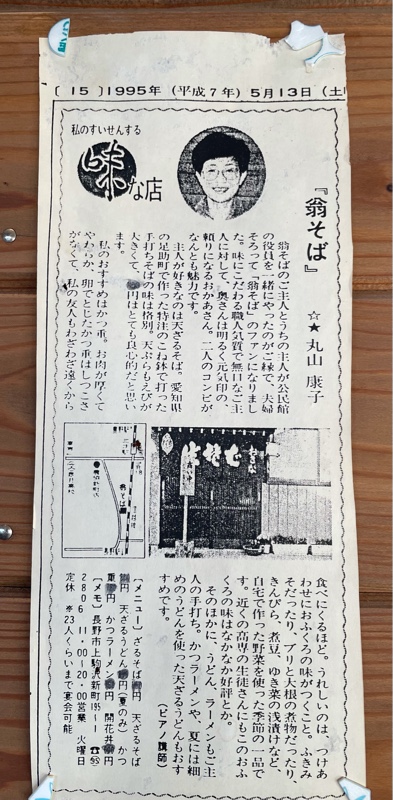 〔15〕1995年（平成7年）5月13日（土
私のすいせんする
味な店
『翁そば』
☆★丸山 康子
翁そばのご主人とうちの主人が公民館
の役員を一緒にやったのがご縁で、夫婦
そろって「翁そば」のファンになりまし
た。味にこだわる職人気質で無口なご主
人に対して、奥さんは明るく元気印の、
頼りになるおかあさん。二人のコンビが
なんとも魅力です。
主人が好きなのは天ざるそば。愛知県
の足助町で作った特注のこね鉢で打った
手打ちそばの味は格別。天ぷらもえびが
大きくて、円はとても良心的だと思い
ます。
私のおすすめはかつ重。お肉が厚くて
やわらか、卵でとじたかつ重はしつこさ
がなくて、私の友人もわざわざ遠くから
食べにくるほど。うれしいのは、つけあ
わせにおふくろの味がつくこと。ふきみ
そだったり、ブリと大根の煮物だったり、
きんぴら、煮豆、ゆき菜の浅漬けなど、
自宅で作った野菜を使った季節の一品で
す。近くの高専の生徒さんにもこのおふ
くろの味はなかなか好評とか。
そのほかに、うどん、ラーメンもご主
人の手打ち。かつラーメンや、夏には細
めのうどんを使った天ざるうどんもおす
すめです。
（ピアノ講師）
〔メニュー〕ざるそば 円 天ざるそば
円 天ざるうどん 円（夏のみ） かつ
重 円 かつラーメン 円 開花丼 円
〔メモ〕長野市上駒沢新町195－1 ☎
2806 11・00～20・00営業 火曜日
定休 ※23人くらいまで宴会可能
翁そば